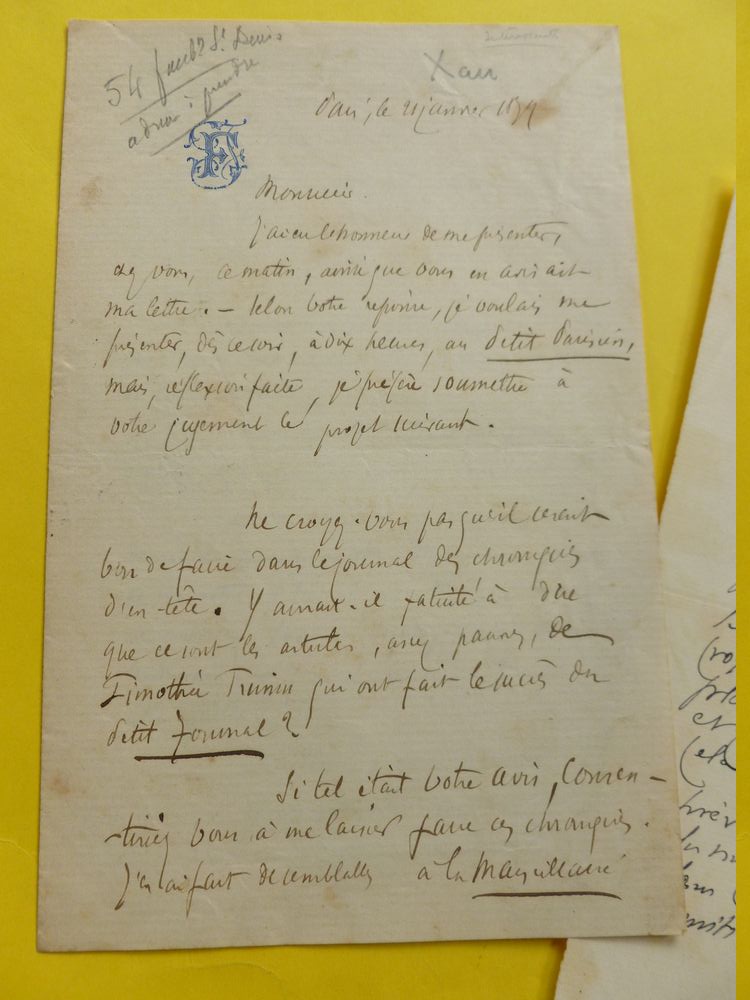 54 faubg St Denis
adresse à prendre
Xau
Paris, le 21 janvier 1879
Monsieur.
J'ai eu l'honneur de me présenter,
chez vous, ce matin, ainsi que vous en avisait
ma lettre. — Selon votre réponse, je voulais me
présenter, dès ce soir, à dix heures, au Petit Parisien,
mais, réflexion faite, je préfère soumettre à
votre jugement le projet suivant.
Ne croyez-vous pas qu'il serait
bon de faire dans le journal des chroniques
d'en-tête. Y aurait-il fatuité à dire
que ce sont les articles, assez pauvres, de
Timothée Trimm qui ont fait le succès du
Petit Journal ?
Si tel était votre avis, consen-
-tiriez vous à me laisser faire ces chroniques.
J'en ai fait de semblables à la Marseillaise
et